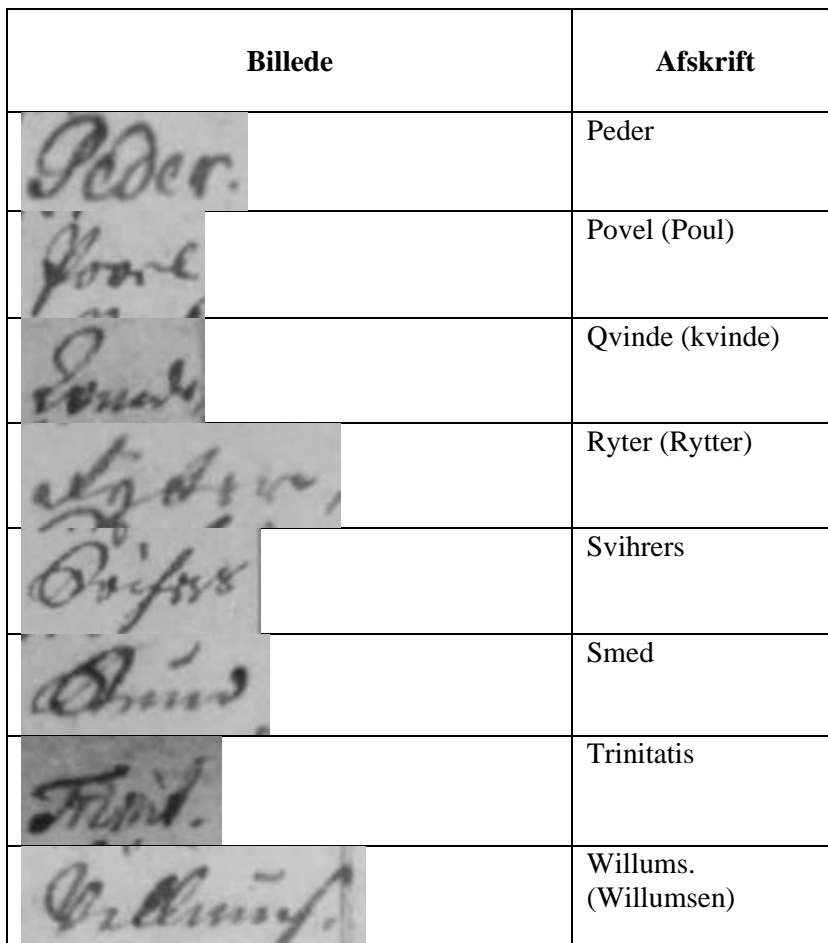 Billede Afskrift
Peder. Peder
Povel Povel (Poul)
Qvinde Qvinde (kvinde)
Ryter, Ryter (Rytter)
Svihrers Svihrers
Smed Smed
Trinit. Trinitatis
Willums. Willums.
(Willumsen)